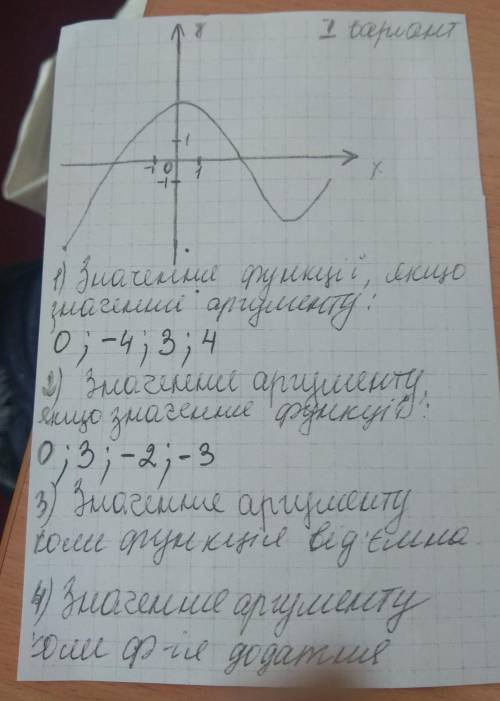 І варіант
у
1
-1 0 1 х
-1
1) Значення функції, якщо
значення аргументу:
0; -4; 3; 4
2) Значення аргументу,
якщо значення функції:
0; 3; -2; -3
3) Значення аргументу
коли функція від'ємна
4) Значення аргументу
коли ф-ія додатня